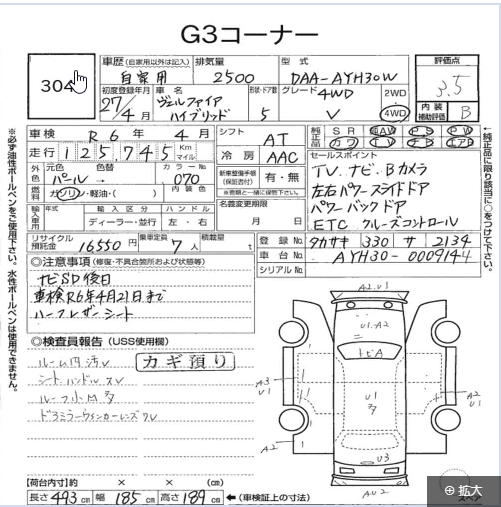 G3コーナー
304
車歴 (自家用以外は記入) 排気量 型式
自家用 2500 DAA-AYH30W
初度登録年月 車名 形状・ドア数 グレード
27/4月 ヴェルファイア ハイブリッド 5 4WD V
2WD
4WD
評価点
3.5
内装補助評価 B
車検 R6年4月
走行 125,745 Km マイル
外色 元色 色替 カラーNo
パール 070
内装色
燃料 ガソリン・軽油・( )
輸入車用 年式 輸入区分 ハンドル
ディーラー・並行 左・右
リサイクル預託金 16550円 乗車定員 7人 積載量 t
シフト AT
冷房 AAC
新車整備手帳 (保証書付) 有・無
名義変更期限
月 日
純正品 SR AW PS PW
カワ TV ナビ エアB
セールスポイント
TV ナビ Bカメラ
左右パワースライドドア
パワーバックドア
ETC クルーズコントロール
登録No. タカサキ 330 サ 2134
車台No. AYH30-0009144
シリアルNo.
※必ず油性ボールペンをご使用下さい。水性ボールペンは使用できません。
↑純正品に限り該当に○をつけて下さい。
◎注意事項 (修復・不具合箇所および状態等)
ナビSD後日
車検R6年4月21日まで
ハーフレザーシート
◎検査員報告 (USS使用欄)
カギ預り
ルーム内汚V
シートハンドルスV
ルーフ小キズ多
ドアミラーウインカーレンズワV
A2.U1
U1.A2
トビA
U1
多
A3
U1
A2
U1
A2
U3
AU2
【荷台内寸】約 × × (cm)
長さ 493 cm 幅 185 cm 高さ 189 cm ←(車検証上の寸法)
スペア
拡大